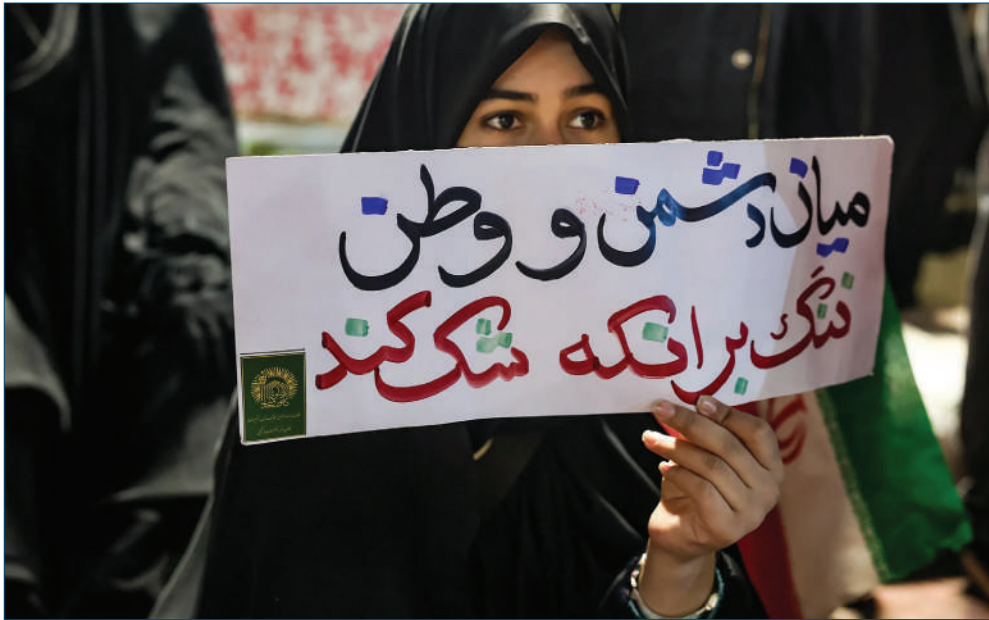 میان دشمن و وطن
ننگ برانکه شک کند